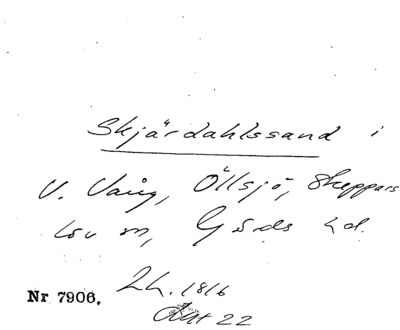 Skjärdahlssand i
V. Vång, Öllsjö, Skeppars
lov m, Gärds hd.
Nr 7906. 2 h. 1816
22